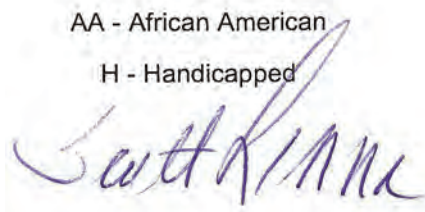 AA - African American
H - Handicapped
Scott